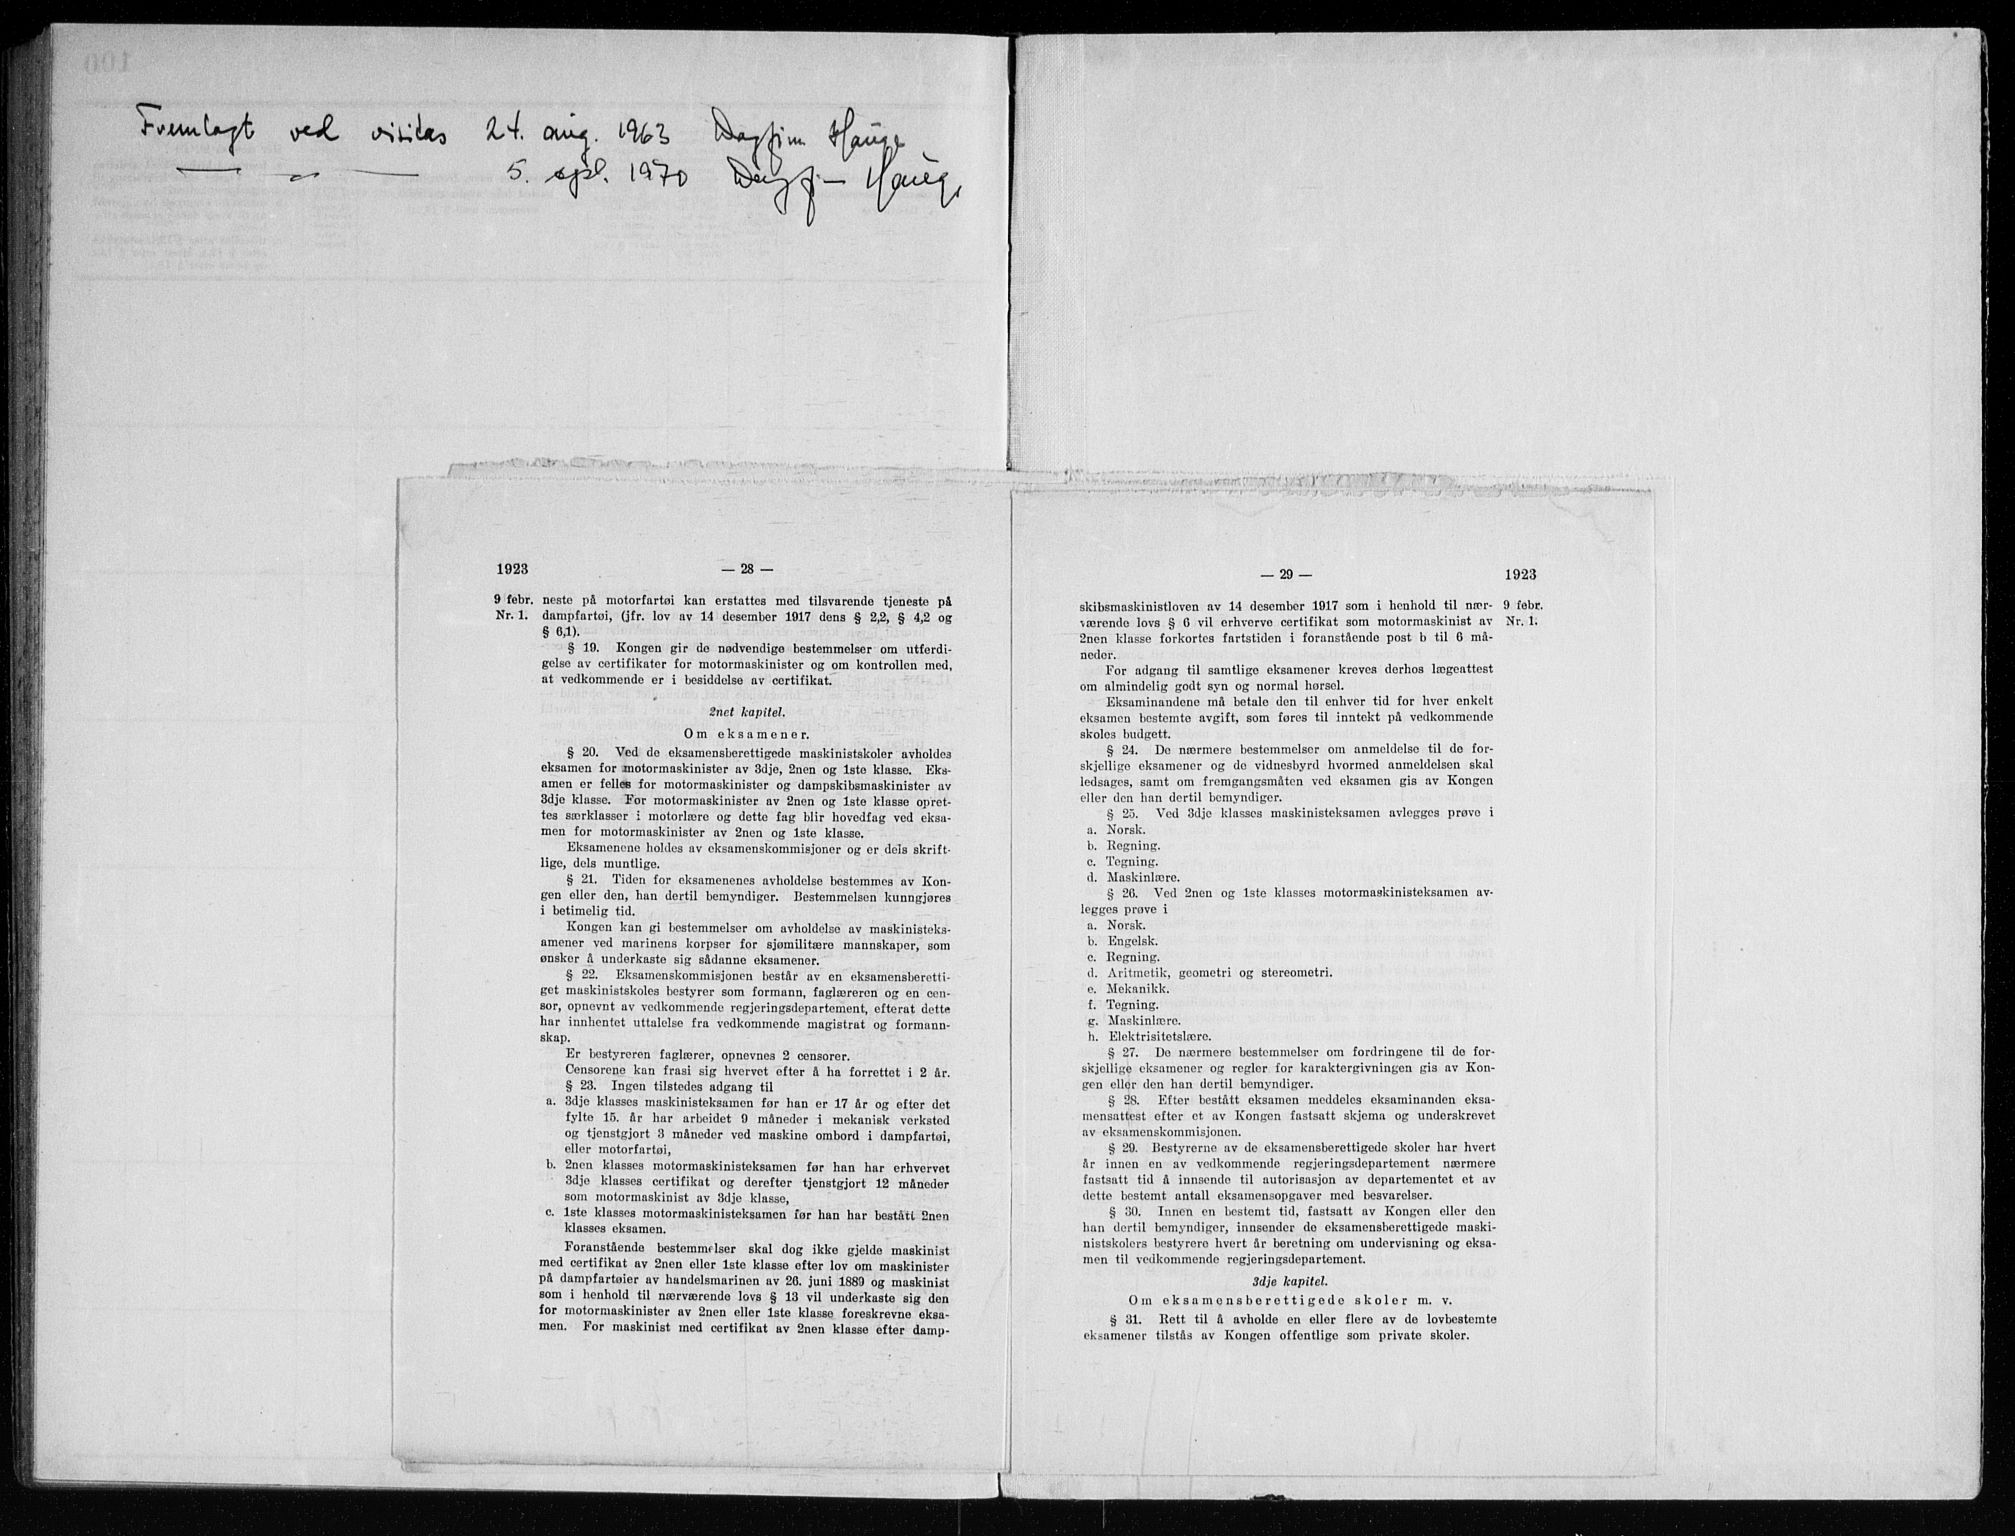 100
Fremlagt ved visitas 24. aug. 1963 Dagfinn Hauge
— „ — 5. sept. 1970 Dagfinn Hauge
1923 — 28 —
9 febr. neste på motorfartøi kan erstattes med tilsvarende tjeneste på
Nr. 1. dampfartøi, (jfr. lov av 14 desember 1917 dens § 2,2, § 4,2 og
§ 6,1).
§ 19. Kongen gir de nødvendige bestemmelser om utferdi-
gelse av certifikater for motormaskinister og om kontrollen med,
at vedkommende er i besiddelse av certifikat.
2net kapitel.
Om eksamener.
§ 20. Ved de eksamensberettigede maskinistskoler avholdes
eksamen for motormaskinister av 3dje, 2nen og 1ste klasse. Eks-
amen er felles for motormaskinister og dampskibsmaskinister av
3dje klasse. For motormaskinister av 2nen og 1ste klasse opret-
tes særklasser i motorlære og dette fag blir hovedfag ved eksa-
men for motormaskinister av 2nen og 1ste klasse.
Eksamenene holdes av eksamenskommisjoner og er dels skrift-
lige, dels muntlige.
§ 21. Tiden for eksamenenes avholdelse bestemmes av Kon-
gen eller den, han dertil bemyndiger. Bestemmelsen kunngjøres
i betimelig tid.
Kongen kan gi bestemmelser om avholdelse av maskinisteks-
amener ved marinens korpser for sjømilitære mannskaper, som
ønsker å underkaste sig sådanne eksamener.
§ 22. Eksamenskommisjonen består av en eksamensberetti-
get maskinistskoles bestyrer som formann, faglæreren og en cen-
sor, opnevnt av vedkommende regjeringsdepartement, efterat dette
har innhentet uttalelse fra vedkommende magistrat og formann-
skap.
Er bestyreren faglærer, opnevnes 2 censorer.
Censorene kan frasi sig hvervet efter å ha forrettet i 2 år.
§ 23. Ingen tilstedes adgang til
a. 3dje klasses maskinisteksamen før han er 17 år og efter det
fylte 15. år har arbeidet 9 måneder i mekanisk verksted
og tjenstgjort 3 måneder ved maskine ombord i dampfartøi,
eller motorfartøi,
b. 2nen klasses motormaskinisteksamen før han har erhvervet
3dje klasses certifikat og derefter tjenstgjort 12 måneder
som motormaskinist av 3dje klasse,
c. 1ste klasses motormaskinisteksamen før han har bestått 2nen
klasses eksamen.
Foranstående bestemmelser skal dog ikke gjelde maskinist
med certifikat av 2nen eller 1ste klasse efter lov om maskinister
på dampfartøier av handelsmarinen av 26. juni 1889 og maskinist
som i henhold til nærværende lovs § 13 vil underkaste sig den
for motormaskinister av 2nen eller 1ste klasse foreskrevne eksa-
men. For maskinist med certifikat av 2nen klasse efter damp-
— 29 — 1923
skibsmaskinistloven av 14 desember 1917 som i henhold til nær- 9 febr.
værende lovs § 6 vil erhverve certifikat som motormaskinist av Nr. 1.
2nen klasse forkortes fartstiden i foranstående post b til 6 må-
neder.
For adgang til samtlige eksamener kreves derhos lægeattest
om almindelig godt syn og normal hørsel.
Eksaminandene må betale den til enhver tid for hver enkelt
eksamen bestemte avgift, som føres til inntekt på vedkommende
skoles budgett.
§ 24. De nærmere bestemmelser om anmeldelse til de for-
skjellige eksamener og de vidnesbyrd hvormed anmeldelsen skal
ledsages, samt om fremgangsmåten ved eksamen gis av Kongen
eller den han dertil bemyndiger.
§ 25. Ved 3dje klasses maskinisteksamen avlegges prøve i
a. Norsk.
b. Regning.
c. Tegning.
d. Maskinlære.
§ 26. Ved 2nen og 1ste klasses motormaskinisteksamen av-
legges prøve i
a. Norsk.
b. Engelsk.
c. Regning.
d. Aritmetik, geometri og stereometri.
e. Mekanikk.
f. Tegning.
g. Maskinlære.
h. Elektrisitetslære.
§ 27. De nærmere bestemmelser om fordringene til de for-
skjellige eksamener og regler for karaktergivningen gis av Kon-
gen eller den han dertil bemyndiger.
§ 28. Efter bestått eksamen meddeles eksaminanden eksa-
mensattest efter et av Kongen fastsatt skjema og underskrevet
av eksamenskommisjonen.
§ 29. Bestyrerne av de eksamensberettigede skoler har hvert
år innen en av vedkommende regjeringsdepartement nærmere
fastsatt tid å innsende til autorisasjon av departementet et av
dette bestemt antall eksamensopgaver med besvarelser.
§ 30. Innen en bestemt tid, fastsatt av Kongen eller den
han dertil bemyndiger, innsender de eksamensberettigede maski-
nistskolers bestyrere hvert år beretning om undervisning og eksa-
men til vedkommende regjeringsdepartement.
3dje kapitel.
Om eksamensberettigede skoler m. v.
§ 31. Rett til å avholde en eller flere av de lovbestemte
eksamener tilstås av Kongen offentlige som private skoler.